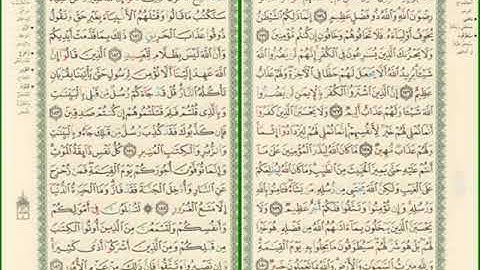 رِضْوَٰنَ ٱللَّهِ وَٱللَّهُ ذُو فَضْلٍ عَظِيمٍ ١٧٤ إِنَّمَا ذَٰلِكُمُ ٱلشَّيْطَٰنُ
يُخَوِّفُ أَوْلِيَآءَهُۥ فَلَا تَخَافُوهُمْ وَخَافُونِ إِن كُنتُم مُّؤْمِنِينَ ١٧٥
وَلَا يَحْزُنكَ ٱلَّذِينَ يُسَٰرِعُونَ فِى ٱلْكُفْرِ إِنَّهُمْ لَن يَضُرُّوا۟ ٱللَّهَ
شَيْـًٔا يُرِيدُ ٱللَّهُ أَلَّا يَجْعَلَ لَهُمْ حَظًّا فِى ٱلْءَاخِرَةِ وَلَهُمْ عَذَابٌ
عَظِيمٌ ١٧٦ إِنَّ ٱلَّذِينَ ٱشْتَرَوُا۟ ٱلْكُفْرَ بِٱلْإِيمَٰنِ لَن يَضُرُّوا۟ ٱللَّهَ
شَيْـًٔا وَلَهُمْ عَذَابٌ أَلِيمٌ ١٧٧ وَلَا يَحْسَبَنَّ ٱلَّذِينَ كَفَرُوٓا۟ أَنَّمَا
نُمْلِى لَهُمْ خَيْرٌ لِّأَنفُسِهِمْ إِنَّمَا نُمْلِى لَهُمْ لِيَزْدَادُوٓا۟ إِثْمًا
وَلَهُمْ عَذَابٌ مُّهِينٌ ١٧٨ مَّا كَانَ ٱللَّهُ لِيَذَرَ ٱلْمُؤْمِنِينَ عَلَىٰ مَآ
أَنتُمْ عَلَيْهِ حَتَّىٰ يَمِيزَ ٱلْخَبِيثَ مِنَ ٱلطَّيِّبِ وَمَا كَانَ ٱللَّهُ لِيُطْلِعَكُمْ
عَلَى ٱلْغَيْبِ وَلَٰكِنَّ ٱللَّهَ يَجْتَبِى مِن رُّسُلِهِۦ مَن يَشَآءُ فَـَٔامِنُوا۟ بِٱللَّهِ
وَرُسُلِهِۦ وَإِن تُؤْمِنُوا۟ وَتَتَّقُوا۟ فَلَكُمْ أَجْرٌ عَظِيمٌ ١٧٩ وَلَا يَحْسَبَنَّ
ٱلَّذِينَ يَبْخَلُونَ بِمَآ ءَاتَىٰهُمُ ٱللَّهُ مِن فَضْلِهِۦ هُوَ خَيْرًا
لَّهُم بَلْ هُوَ شَرٌّ لَّهُمْ سَيُطَوَّقُونَ مَا بَخِلُوا۟ بِهِۦ يَوْمَ ٱلْقِيَٰمَةِ
وَلِلَّهِ مِيرَٰثُ ٱلسَّمَٰوَٰتِ وَٱلْأَرْضِ وَٱللَّهُ بِمَا تَعْمَلُونَ خَبِيرٌ ١٨٠
سَنَكْتُبُ مَا قَالُوا۟ وَقَتْلَهُمُ ٱلْأَنۢبِيَآءَ بِغَيْرِ حَقٍّ وَنَقُولُ
ذُوقُوا۟ عَذَابَ ٱلْحَرِيقِ ١٨١ ذَٰلِكَ بِمَا قَدَّمَتْ أَيْدِيكُمْ
وَأَنَّ ٱللَّهَ لَيْسَ بِظَلَّامٍ لِّلْعَبِيدِ ١٨٢ ٱلَّذِينَ قَالُوٓا۟ إِنَّ
ٱللَّهَ عَهِدَ إِلَيْنَآ أَلَّا نُؤْمِنَ لِرَسُولٍ حَتَّىٰ يَأْتِيَنَا بِقُرْبَانٍ
تَأْكُلُهُ ٱلنَّارُ قُلْ قَدْ جَآءَكُمْ رُسُلٌ مِّن قَبْلِى بِٱلْبَيِّنَٰتِ
وَبِٱلَّذِى قُلْتُمْ فَلِمَ قَتَلْتُمُوهُمْ إِن كُنتُمْ صَٰدِقِينَ ١٨٣
فَإِن كَذَّبُوكَ فَقَدْ كُذِّبَ رُسُلٌ مِّن قَبْلِكَ جَآءُو بِٱلْبَيِّنَٰتِ
وَٱلزُّبُرِ وَٱلْكِتَٰبِ ٱلْمُنِيرِ ١٨٤ كُلُّ نَفْسٍ ذَآئِقَةُ ٱلْمَوْتِ
وَإِنَّمَا تُوَفَّوْنَ أُجُورَكُمْ يَوْمَ ٱلْقِيَٰمَةِ فَمَن زُحْزِحَ
عَنِ ٱلنَّارِ وَأُدْخِلَ ٱلْجَنَّةَ فَقَدْ فَازَ وَمَا ٱلْحَيَوٰةُ ٱلدُّنْيَآ
إِلَّا مَتَٰعُ ٱلْغُرُورِ ١٨٥ لَتُبْلَوُنَّ فِىٓ أَمْوَٰلِكُمْ
وَأَنفُسِكُمْ وَلَتَسْمَعُنَّ مِنَ ٱلَّذِينَ أُوتُوا۟ ٱلْكِتَٰبَ
مِن قَبْلِكُمْ وَمِنَ ٱلَّذِينَ أَشْرَكُوٓا۟ أَذًى كَثِيرًا
وَإِن تَصْبِرُوا۟ وَتَتَّقُوا۟ فَإِنَّ ذَٰلِكَ مِنْ عَزْمِ ٱلْأُمُورِ ١٨٦